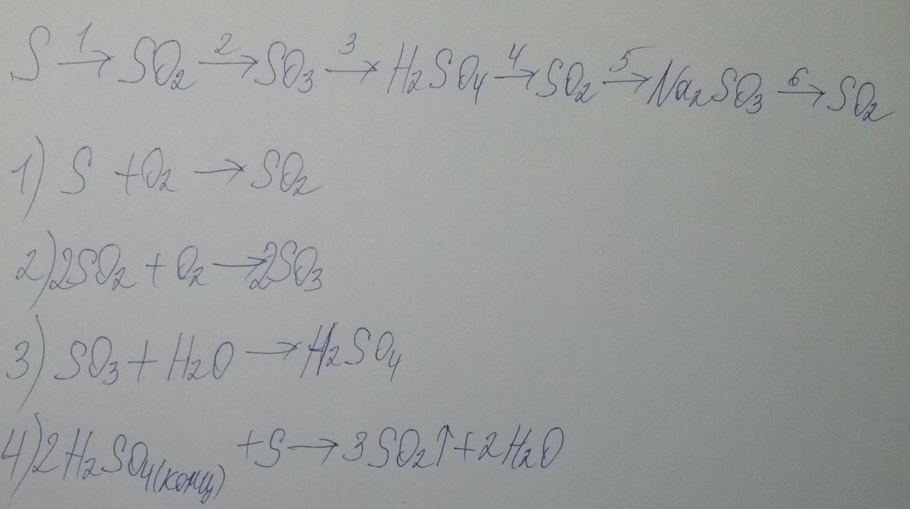 S 1→ SO₂ 2→ SO₃ 3→ H₂SO₄ 4→ SO₂ 5→ Na₂SO₃ 6→ SO₂
1) S + O₂ → SO₂
2) 2SO₂ + O₂ → 2SO₃
3) SO₃ + H₂O → H₂SO₄
4) 2H₂SO₄(конц) + S → 3SO₂↑ + 2H₂O